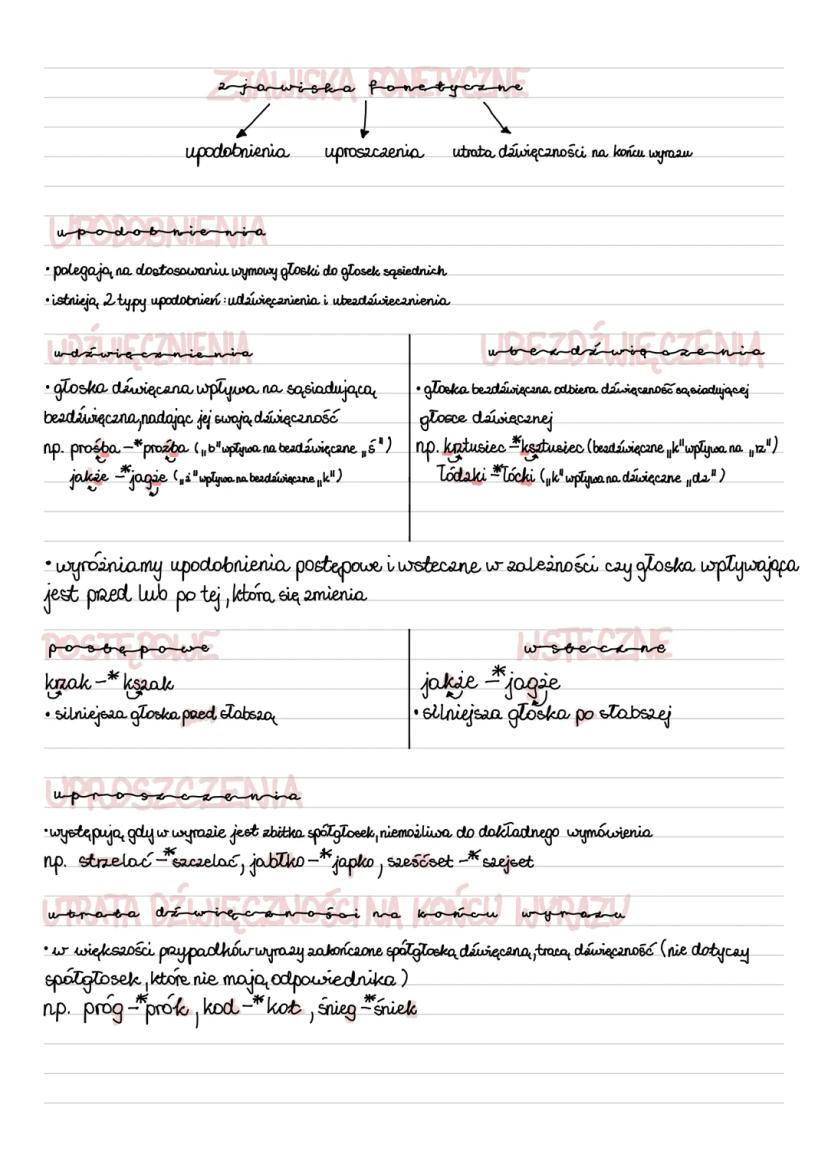 zjawiska fonetyczne
upodobnienia uproszczenia utrata dźwięczności na końcu wyrazu
upodobnienia
• polegają na dostosowaniu wymowy głoski do głosek sąsiednich
• istnieją 2 typy upodobnień: udźwięcznienia i ubezdźwiecznienia
udźwięcznienia
• głoska dźwięczna wpływa na sąsiadującą
bezdźwięczną, nadając jej swoją dźwięczność
np. prośba –* proźba („b" wpływa na bezdźwięczne „ś")
jakże –* jagże („ż" wpływa na bezdźwięczne „k")
ubezdźwięczenia
• głoska bezdźwięczna odbiera dźwięczność sąsiadującej
głosce dźwięcznej
np. krztusiec –* ksztusiec (bezdźwięczne „k" wpływa na „rz")
Łódzki –* Łócki („k" wpływa na dźwięczne „dz")
• wyróżniamy upodobnienia postępowe i wsteczne w zależności czy głoska wpływająca
jest przed lub po tej, która się zmienia
postępowe
krzak –* kszak
• silniejsza głoska przed słabszą
wsteczne
jakże –* jagże
• silniejsza głoska po słabszej
uproszczenia
• występują, gdy w wyrazie jest zbitka spółgłosek, niemożliwa do dokładnego wymówienia
np. strzelać –* szczelać, jabłko –* japko, sześćset –* szejset
utrata dźwięczności na końcu wyrazu
• w większości przypadków wyrazy zakończone spółgłoską dźwięczną, tracą dźwięczność (nie dotyczy
spółgłosek, które nie mają odpowiednika)
np. próg –* prók, kod –* kot, śnieg –* śniek